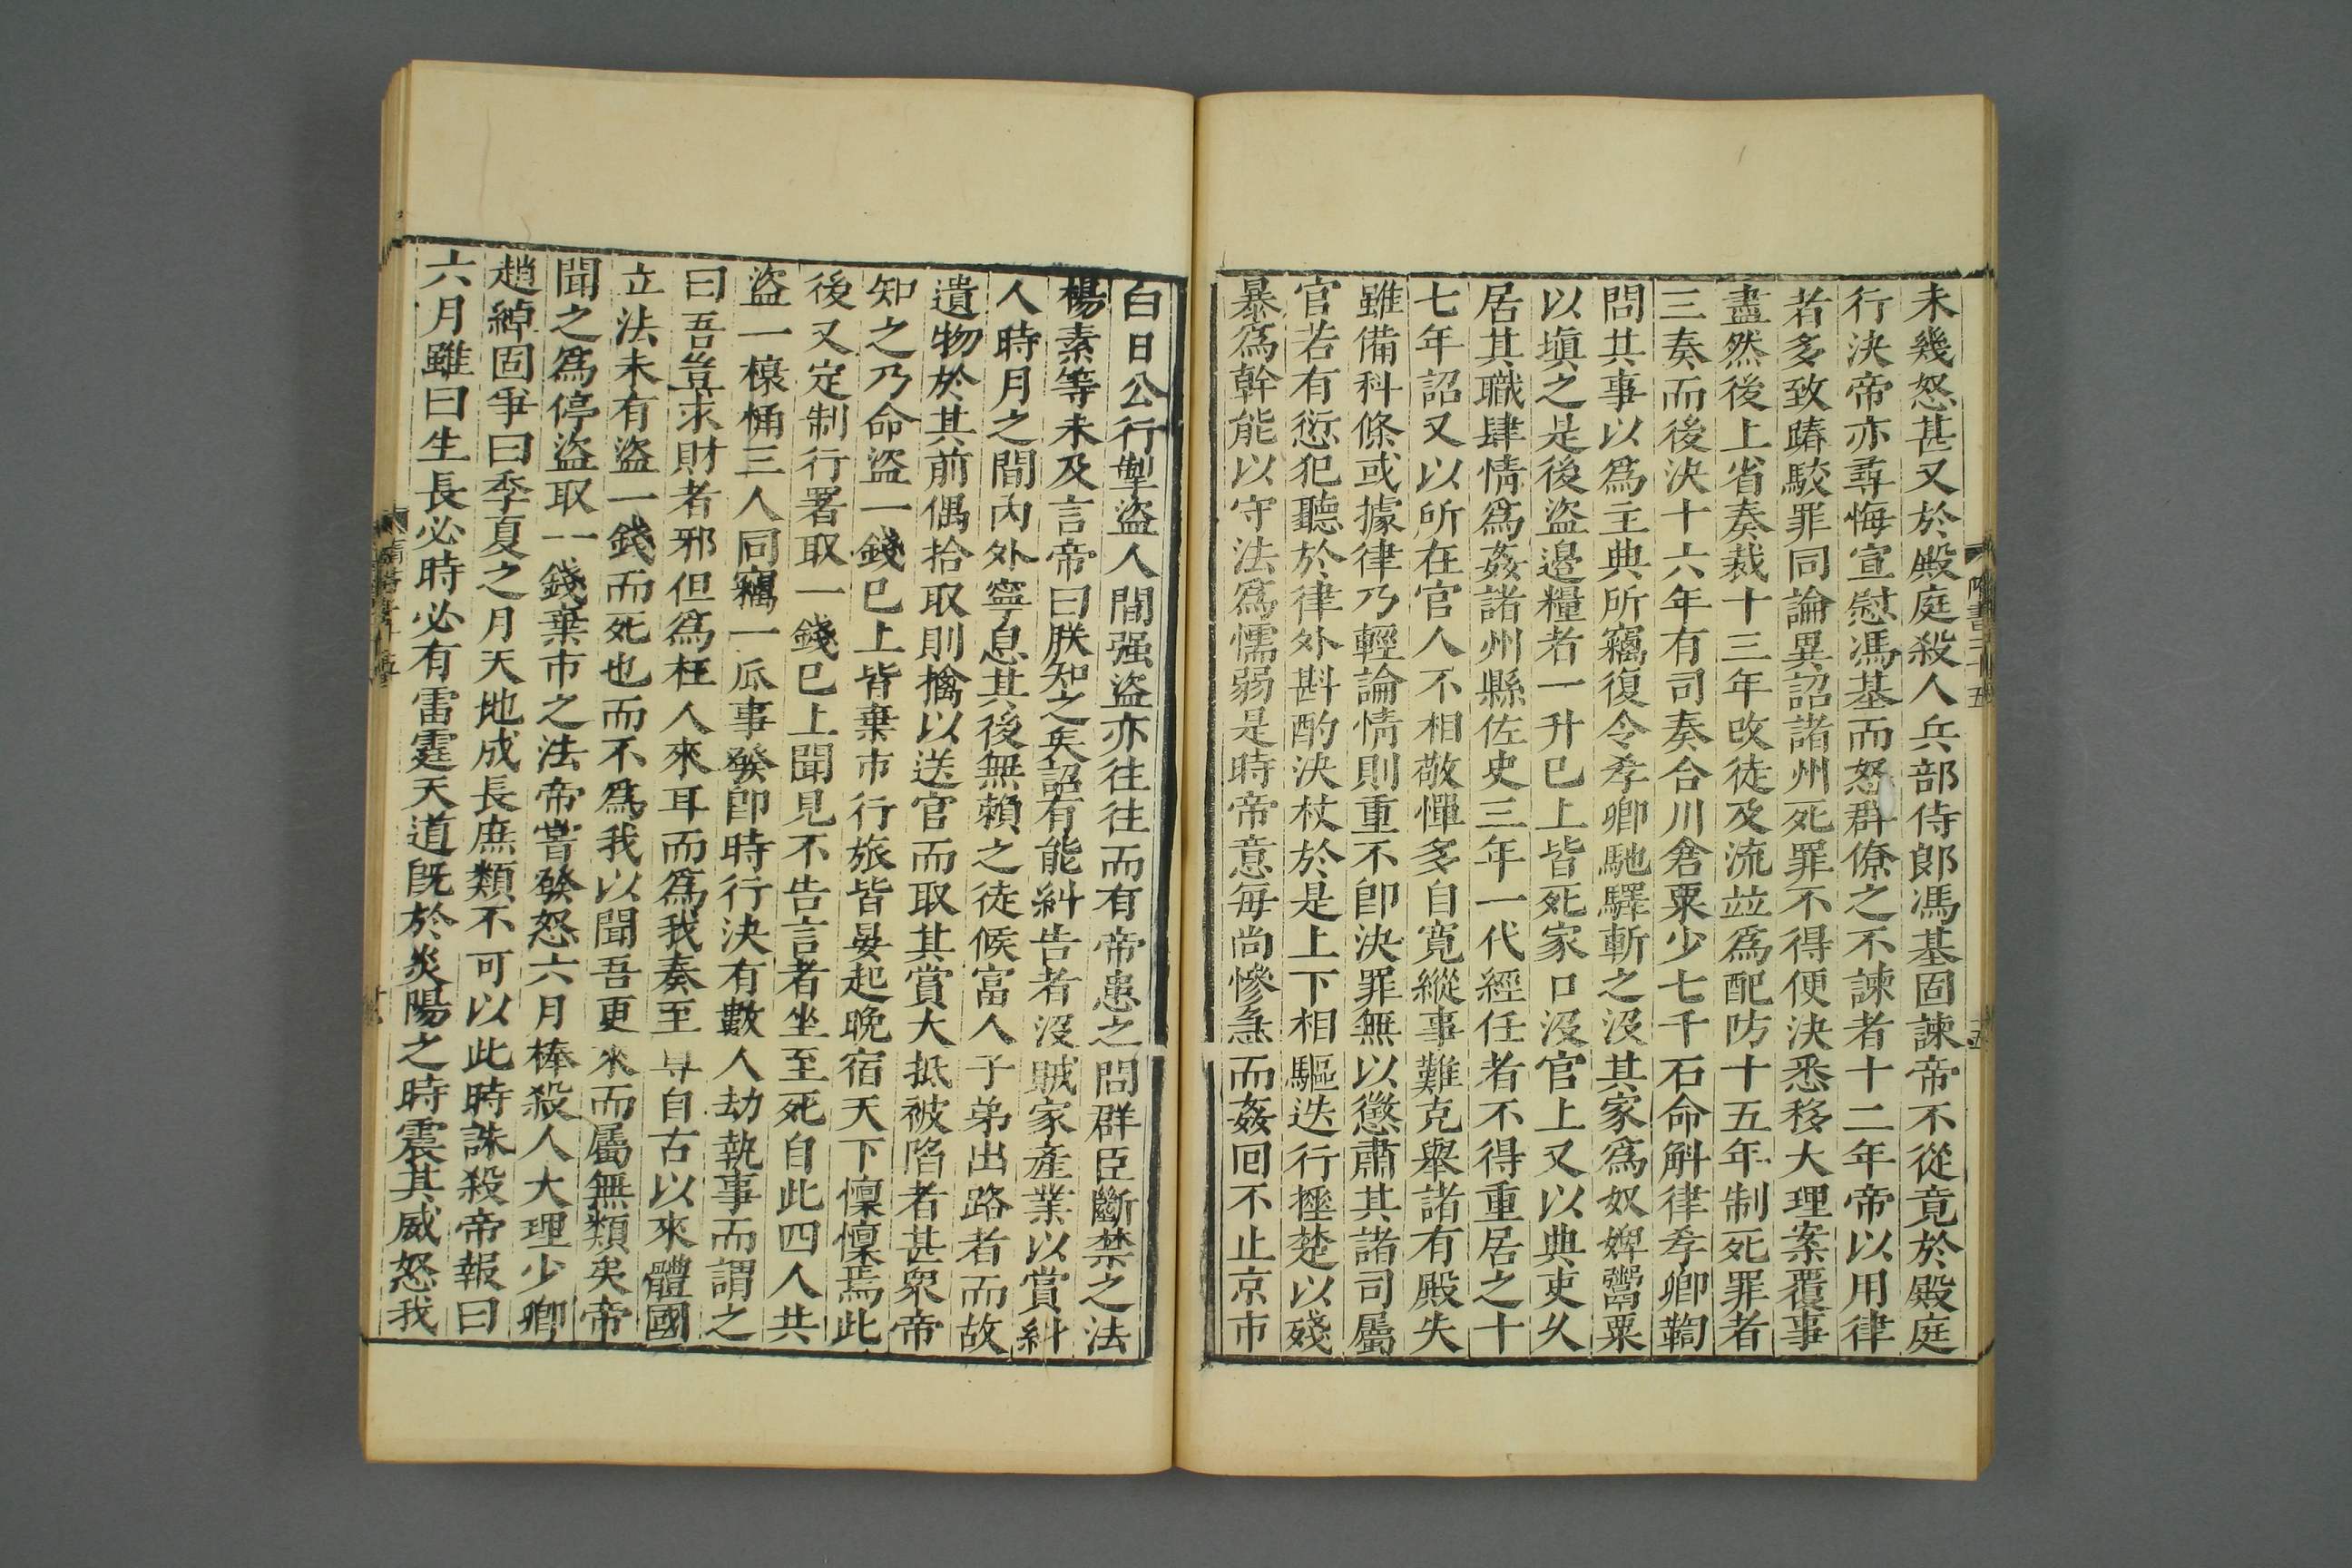 未幾怒甚又於殿庭殺人兵部侍郞馮基固諫帝不從竟於殿庭
行決帝亦尋悔宣慰馮基而怒群僚之不諫者十二年帝以用律
者多致踳駮罪同論異詔諸州死罪不得便決悉移大理案覆事
盡然後上省奏裁十三年改徒及流並爲配防十五年制死罪者
三奏而後決十六年有司奏合川倉粟少七千石命斛律孝卿鞫
問其事以爲主典所竊復令孝卿馳驛斬之沒其家爲奴婢鬻粟
以塡之是後盜邊糧者一升已上皆死家口沒官上又以典吏久
居其職肆情爲姦諸州縣佐史三年一代經任者不得重居之十
七年詔又以所在官人不相敬憚多自寛縱事難克舉諸有殿失
雖備科條或據律乃輕論情則重不卽決罪無以懲肅其諸司屬
官若有愆犯聽於律外斟酌決杖於是上下相驅迭行捶楚以殘
暴爲幹能以守法爲懦弱是時帝意每尚慘急而姦回不止京市
隋書二十五
五
白日公行掣盜人間强盜亦往往而有帝患之問群臣斷禁之法
楊素等未及言帝曰朕知之矣詔有能糾告者沒賊家產業以賞糾
人時月之間內外寧息其後無賴之徒候富人子弟出路者而故
遺物於其前偶拾取則擒以送官而取其賞大抵被陷者甚衆帝
知之乃命盜一錢已上皆棄市行旅皆晏起晚宿天下懍懍焉此
後又定制行署取一錢已上聞見不告言者坐至死自此四人共
盜一榱桷三人同竊一瓜事發卽時行決有數人劫執事而謂之
曰吾豈求財者邪但爲枉人來耳而爲我奏至尊自古以來體國
立法未有盜一錢而死也而不爲我以聞吾更來而屬無類矣帝
聞之爲停盜取一錢棄市之法帝嘗發怒六月棒殺人大理少卿
趙綽固爭曰季夏之月天地成長庶類不可以此時誅殺帝報曰
六月雖曰生長必時必有雷霆天道旣於炎陽之時震其威怒我